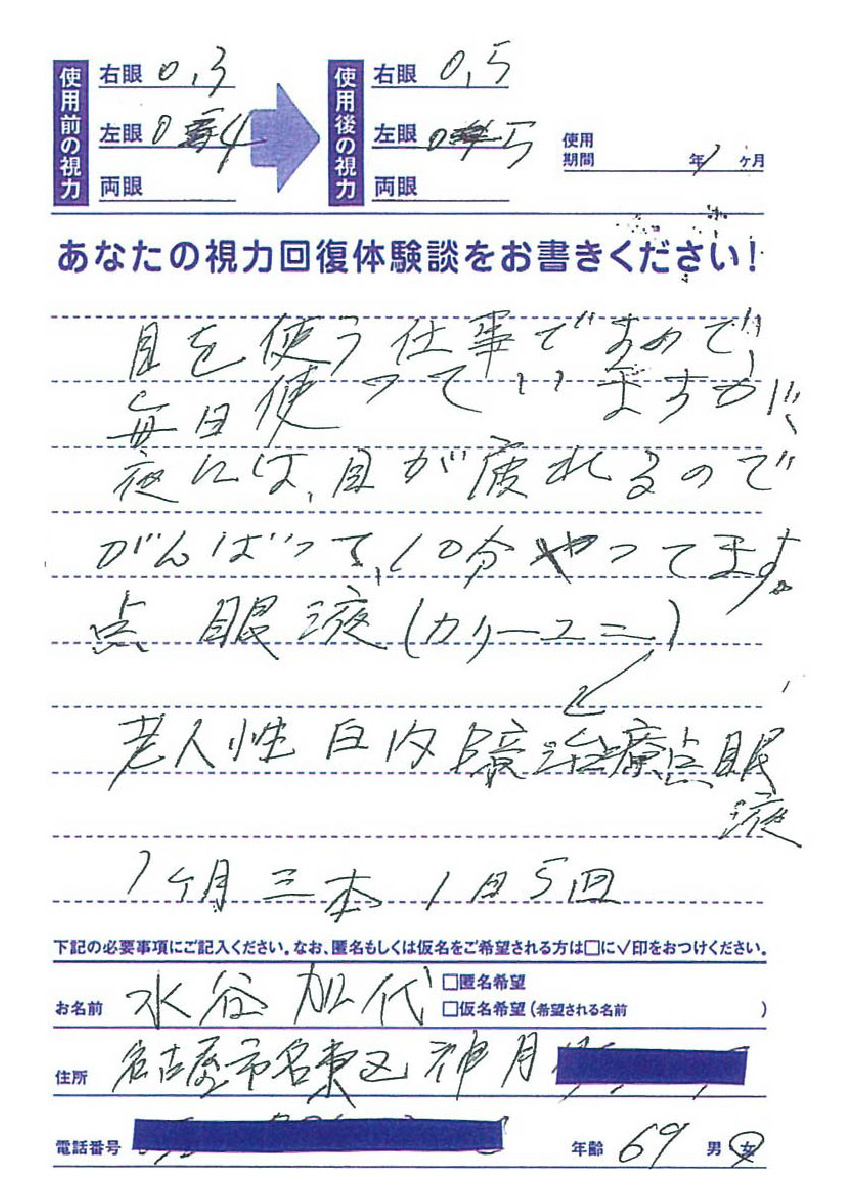 使用前の視力
右眼 0.3
左眼 0 4
両眼
使用後の視力
右眼 0.5
左眼 0 5
両眼
使用期間 年 1 ヶ月
あなたの視力回復体験談をお書きください！
目を使う仕事ですので、
毎日使っていますが、
夜には、目が疲れるので
がんばって、10分やってます。
点眼液(カリーユニ)
老人性白内障治療点眼
液
1ヶ月三本 1日5回
下記の必要事項にご記入ください。なお、匿名もしくは仮名をご希望される方は□に✓印をおつけください。
お名前 水谷 加代 □匿名希望
□仮名希望（希望される名前 ）
住所 名古屋市名東区神月
電話番号 年齢 69 男 女